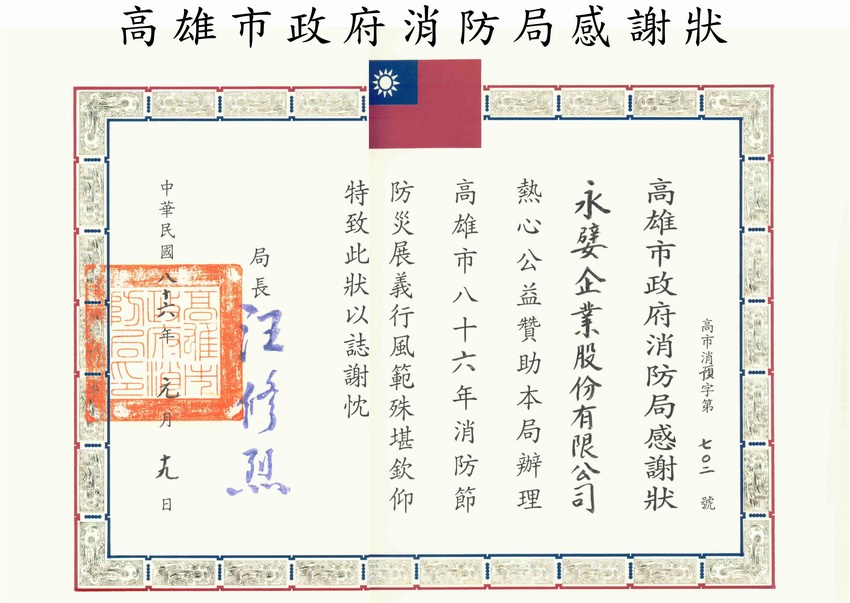 高雄市政府消防局感謝狀
高市消預字第七〇二號
高雄市政府消防局感謝狀
永嬖企業股份有限公司
熱心公益贊助本局辦理
高雄市八十六年消防節
防災展義行風範殊堪欽仰
特致此狀以誌謝忱
局長 汪修烈
高雄市
政府消
防局印
中華民國八十六年元月十九日